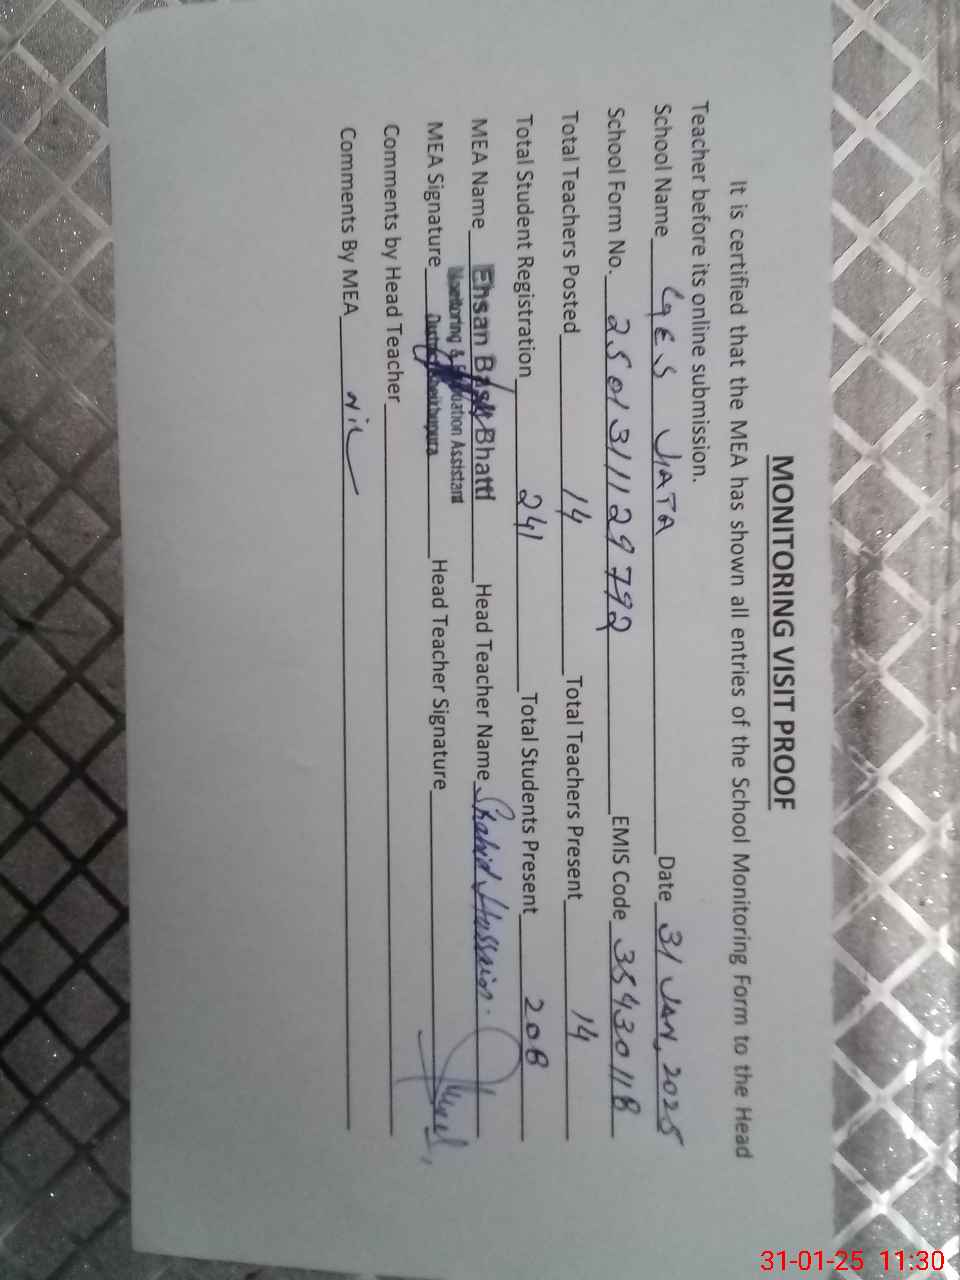 MONITORING VISIT PROOF
It is certified that the MEA has shown all entries of the School Monitoring Form to the Head
Teacher before its online submission.
School Name GES JATA Date 31 JAN, 2025
School Form No. 2501311129792 EMIS Code 35430118
Total Teachers Posted 14 Total Teachers Present 14
Total Student Registration 241 Total Students Present 208
MEA Name Ehsan Bhatti Head Teacher Name Shahid Hussain.
Monitoring & Evaluation Assistant
MEA Signature Head Teacher Signature
Comments by Head Teacher
Comments By MEA Nil
31-01-25 11:30